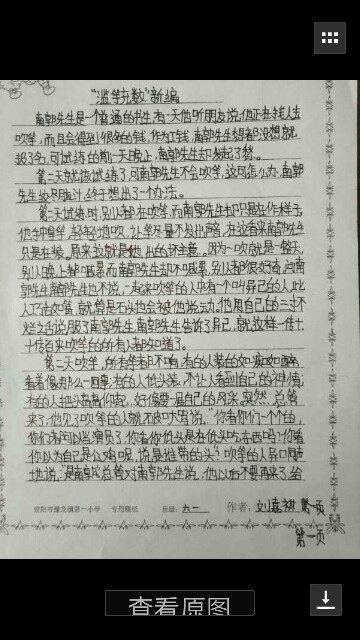 "滥竽充数"新编
南郭先生是一个普通的书生,有一天他听朋友说,他正在找人去
吹竽,而且会得到很多的钱,作为工钱,南郭先生想都没想就
报了名,可试练的前一天晚上,南郭先生却发起了愁。
第二天就该试练了,可南郭先生不会吹竽,这可怎么办,南郭
先生绞尽脑汁,终于想出了一个办法。
第二天试练时,别人都在吹竽,而南郭先生却只是在作样子,
他手中拿竽,轻轻地吹,让竽尽量不发出声音,在这看来南郭先生
只是在装。原来这就是他出的坏主意。因为一吹就是一整天,
别人晚上都喊累而南郭先生却不喊累,别人都很好奇,问南
郭先生南郭先生也不说,一起来吹竽的人中有一个叫异己的人,此
人了去好管,就算是石头也会被他说动。他用自己的三寸不
烂之舌说服了南郭先生,南郭先生告诉了异己,就这样一传十
十传百来吹竽的所有人都知道了。
第二天吹竽,所有竽都不响,有的人装的如痴如醉
看着像那么一回事,有的人低头装,不让人看到自己的神情,
有的人把头高高仰起,好像要一展自己的风采。突然,总管
来了,他见了吹竽的人就不由大骂说,"你看你们一个个的,
你们都可以当演员了,你看你低头是在低头吃东西吗?你看
你以为自己是公鸡呢,说是谁带的头"吹竽的人异口同声
地说,"是南郭"总管对南郭先生说,他以后不要再来了,给
专用稿纸 班级:六一 作者:刘嘉琪 第一页
第一页
查看原图